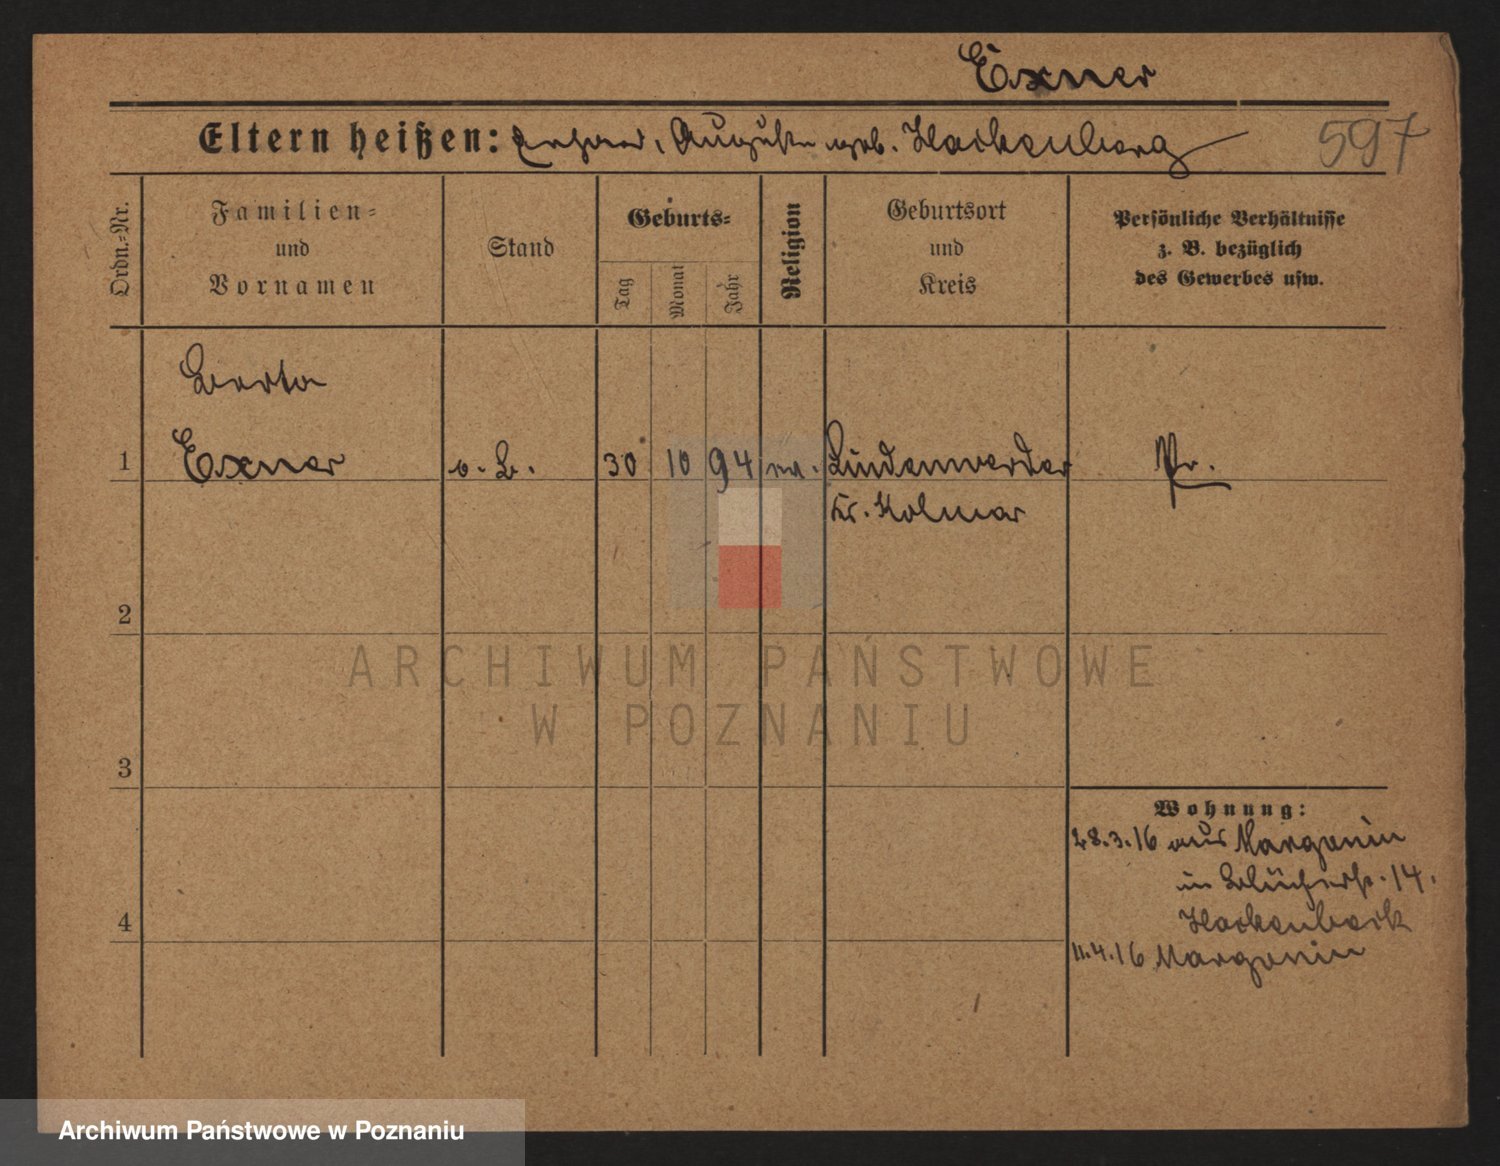 Exner
Eltern heißen: Auguste geb. Hackenberg
597
Ordn.-Nr.
Familien-
und
Vornamen
Stand
Geburts-
Tag
Monat
Jahr
Religion
Geburtsort
und
Kreis
Persönliche Verhältnisse
z. B. bezüglich
des Gewerbes usw.
Berta
1 Exner o. B. 30 10 94 Lindenwerder Pr.
Kr. Kolmar
2
ARCHIWUM PAŃSTWOWE
W POZNANIU
3
Wohnung:
28.3.16 aus Margonin
in Blücherst. 14.
4 Hackenbeck
11.4.16 Margonin
Archiwum Państwowe w Poznaniu